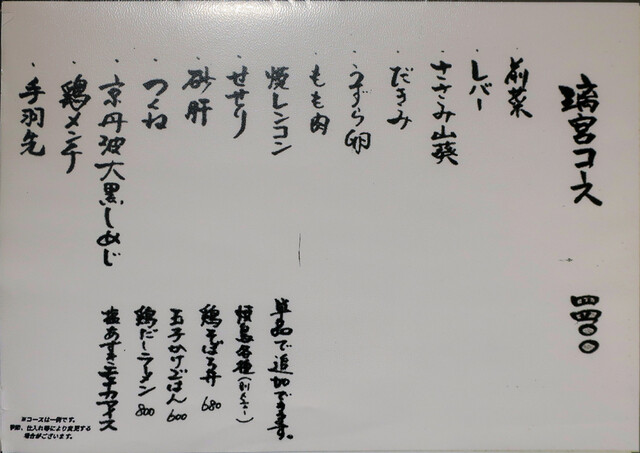 璃宮コース 四四〇〇
前菜
・レバー
・ささみ山葵
・だきみ
・うずら卵
・もも肉
・焼レンコン
・せせり
・砂肝
・つくね
・京丹波大黒しめじ
・鶏メンチ
・手羽先
単品で追加できます。
焼鳥各種
鶏そぼろ丼 680
玉子かけごはん 600
鶏だしラーメン 800
塩あずきモナカアイス
※コースは一例です。
季節、仕入れ等により変更する
場合がございます。